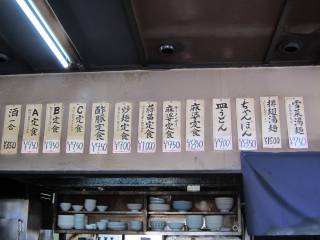 酒一合
¥350
A定食
¥950
B定食
¥950
C定食
¥950
酢豚定食
¥950
炒麺定食
¥1000
蒜苗定食
¥1000
麻婆定食
麻婆定食
皿うどん
¥900
ちゃんぽん
¥850
排翅湯麺
¥1500
雪菜湯麺